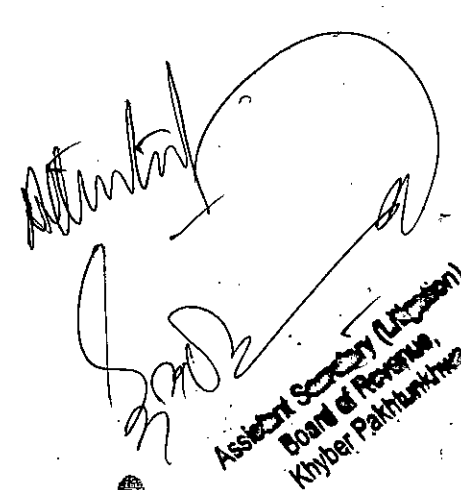 Attested
Assistant Secretary (Litigation)
Board of Revenue,
Khyber Pakhtunkhwa